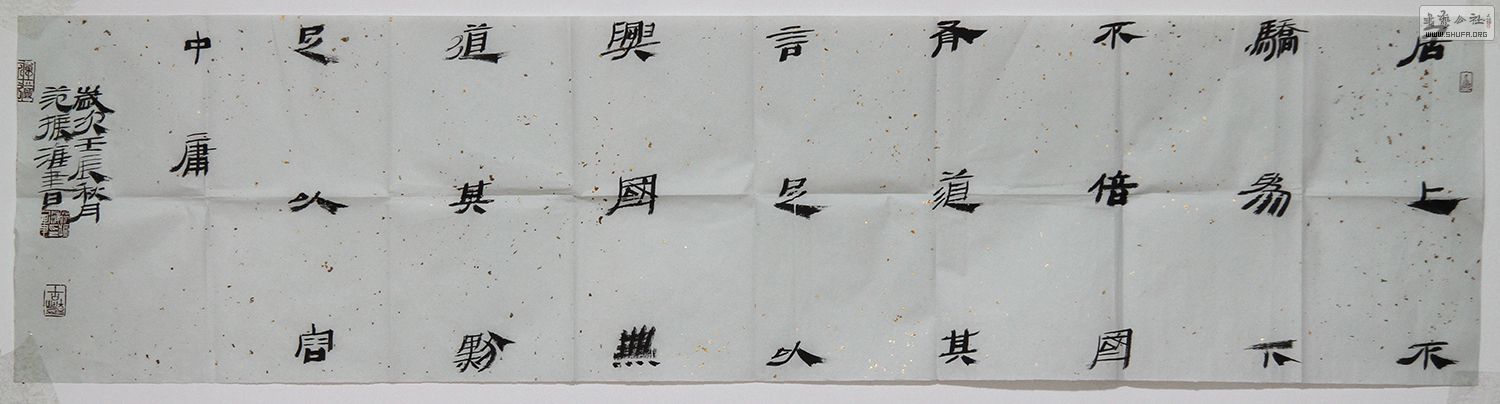 居上不
驕為下
不倍國
有道其
言足以
興國無
道其默
足以容
中庸
歲次壬辰秋月
范振淮書
書藝公社
WWW.SHUFA.ORG